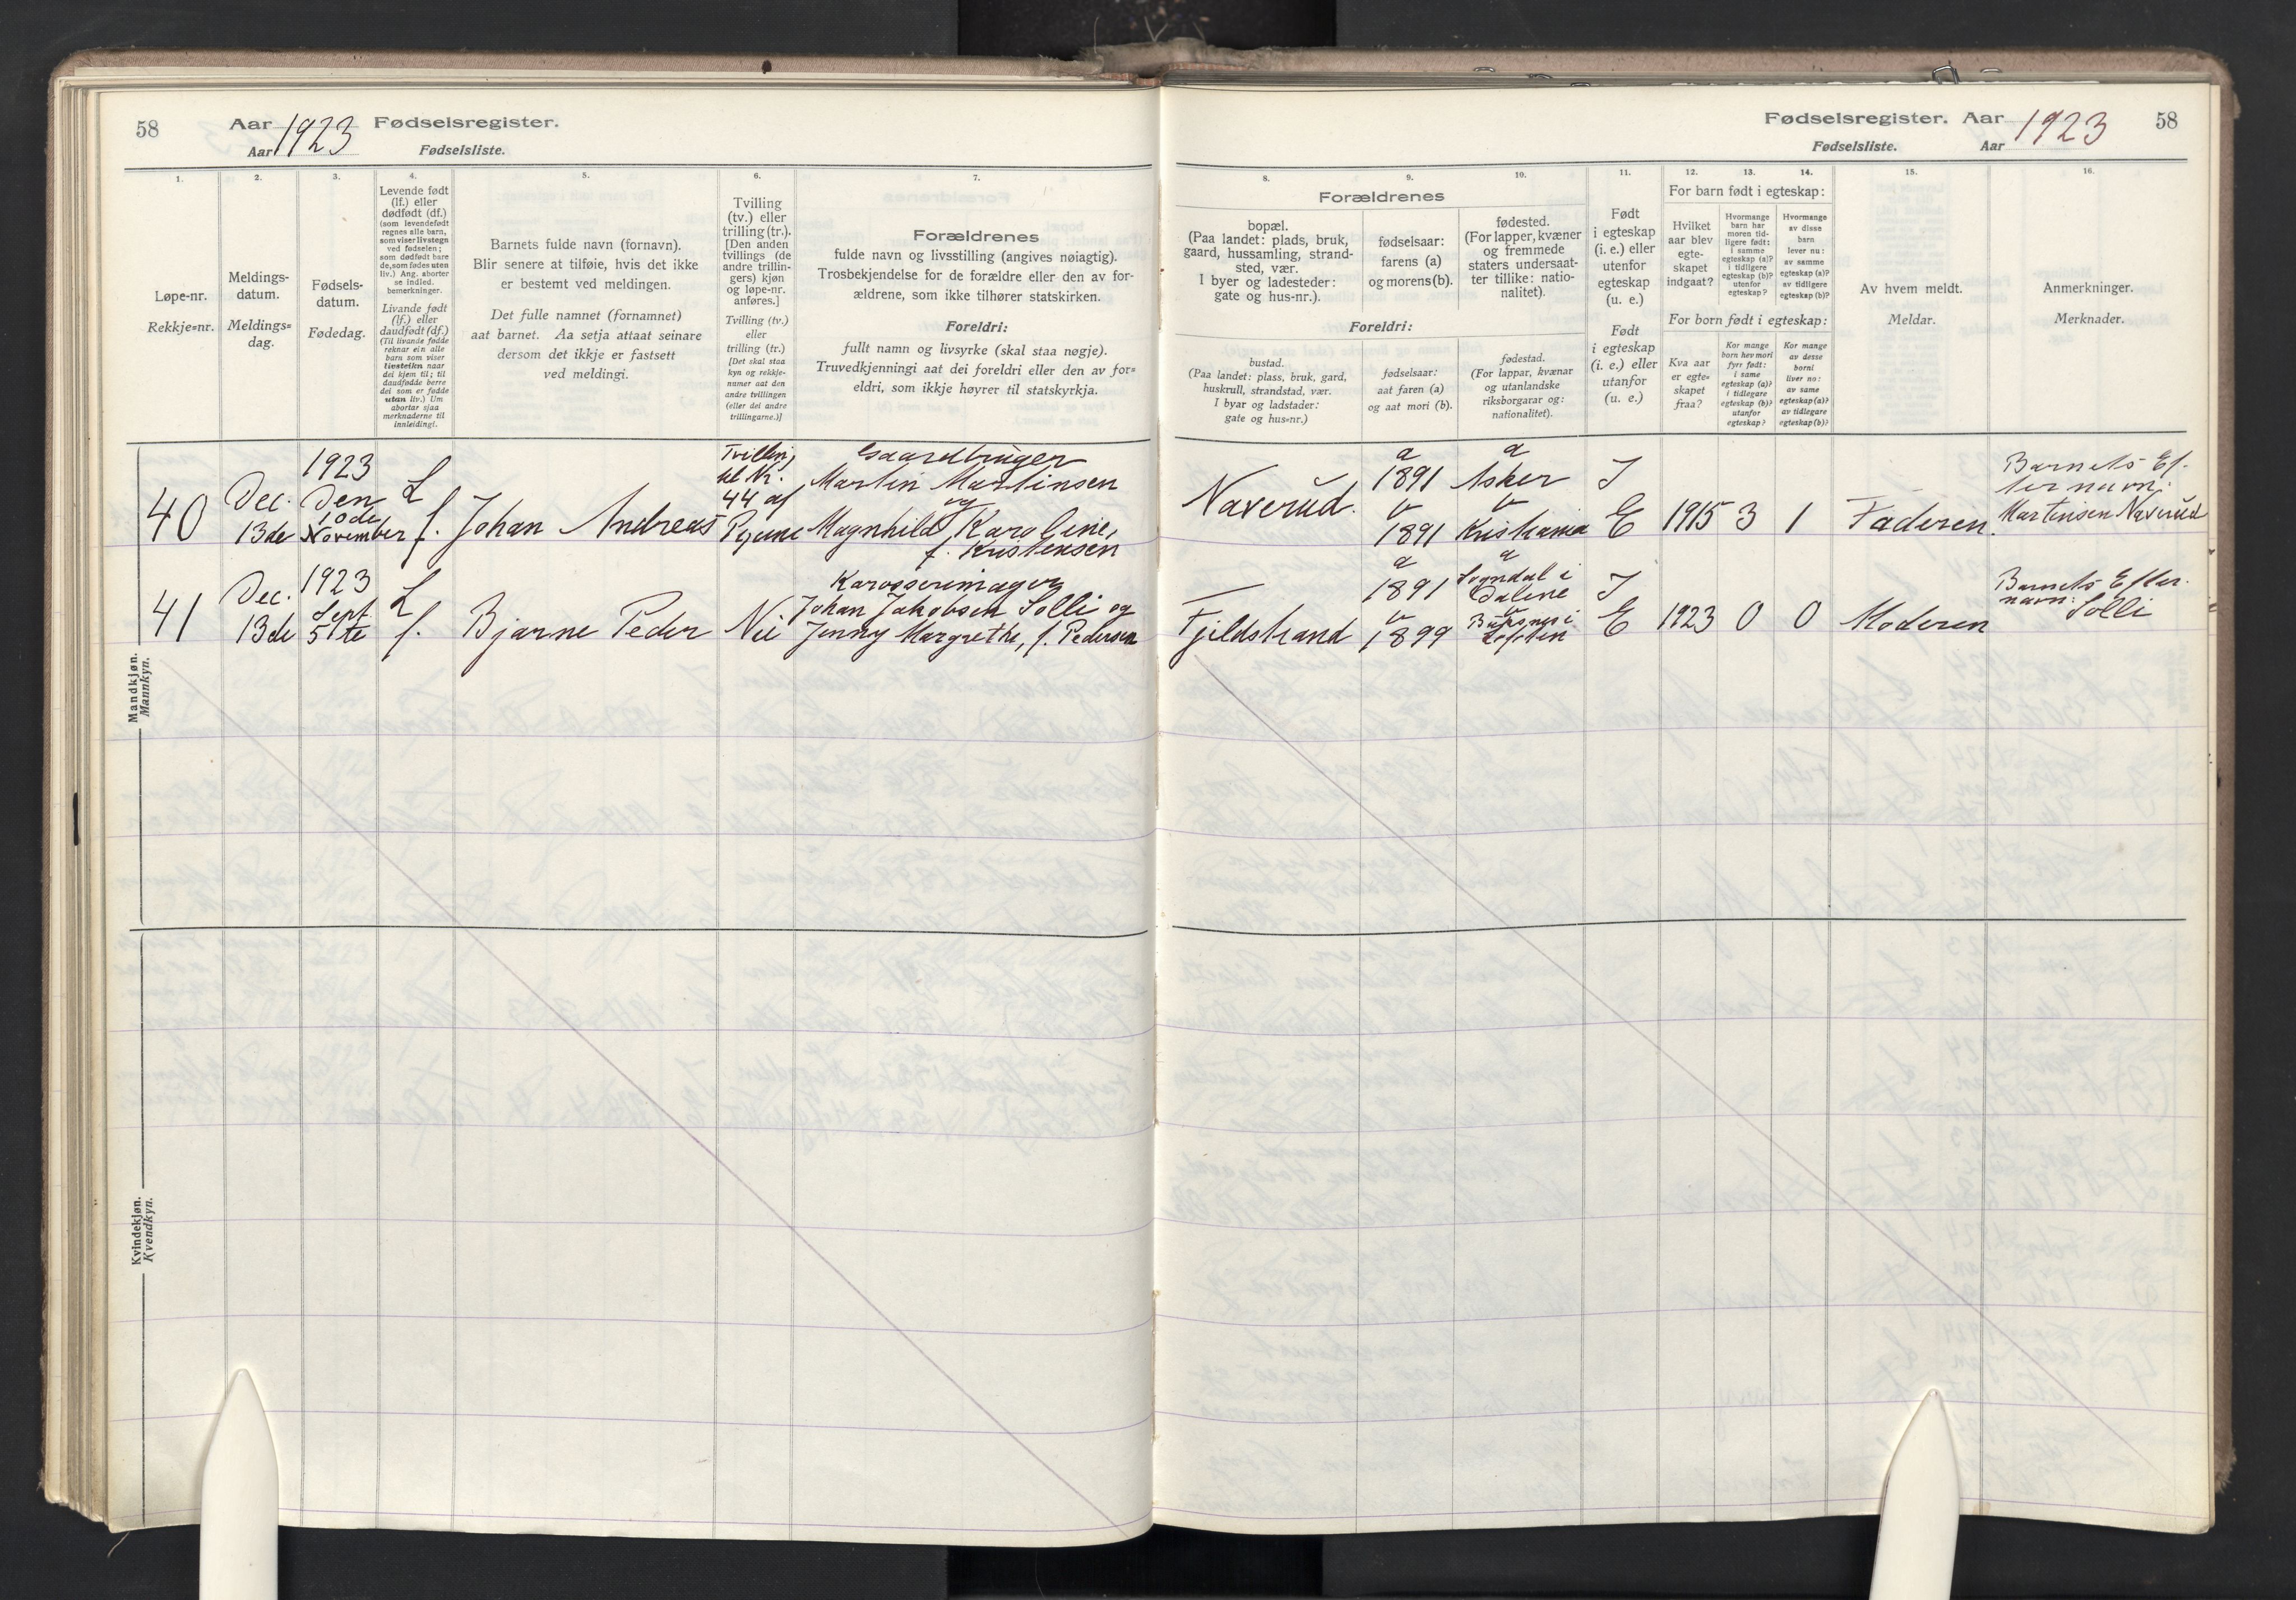 58
Aar 1923 Fødselsregister.
Aar Fødselsliste.
1. 2. 3. 4. 5. 6. 7.
Løpe-nr.
Rekkje=nr.
Meldings-
datum.
Meldings=
dag.
Fødsels-
datum.
Fødedag.
Levende født
(lf.) eller
dødfødt (df.)
(som levendefødt
regnes alle barn,
som viser livstegn
ved fødselen;
som dødfødt bare
de, som fødes uten
liv.) Ang. aborter
se indled.
bemerkninger.
Livande født
(lf.) eller
daudfødt (df.)
(Til livande fødde
reknar ein alle
barn som viser
livsteikn naar
dei kjem til; til
daudfødde berre
dei som er fødde
utan liv.) Um
abortar sjaa
merknaderne til
innleidingi.
Barnets fulde navn (fornavn).
Blir senere at tilføie, hvis det ikke
er bestemt ved meldingen.
Det fulle namnet (fornamnet)
aat barnet. Aa setja attaat seinare
dersom det ikkje er fastsett
ved meldingi.
Tvilling
(tv.) eller
trilling (tr.).
[Den anden
tvillings (de
andre trillin-
gers) kjøn
og løpe-nr.
anføres.]
Tvilling (tv.)
eller
trilling (tr.)
[Det skal staa
kyn og rekkje-
numer aat den
andre tvillingen
(eller dei andre
trillingarne.)]
Forældrenes
fulde navn og livsstilling (angives nøiagtig).
Trosbekjendelse for de forældre eller den av for-
ældrene, som ikke tilhører statskirken.
Foreldri:
fullt namn og livsyrke (skal staa nøgje).
Truvedkjenningi aat dei foreldri eller den av for=
eldri, som ikkje høyrer til statskyrkja.
40
Dec.
13de
1923
Den
10de
November
L
f.
Johan Andreas
Tvilling
til Nr.
44 af
Pigerne
Gaardbruger
Martin Martinsen
og
Magnhild Karoline,
f. Kristensen
41
Dec.
13de
1923
Sept
5te
L
f.
Bjarne Peder
Nei
Karosserimager
Johan Jakobsen Solli og
Jenny Margrethe, f. Pedersen
Mandkjøn.
Mannkyn.
Kvindekjøn.
Kvendkyn.
Fødselsregister. Aar 1923
Fødselsliste. Aar
58
8. 9. 10. 11. 12. 13. 14. 15. 16.
Forældrenes
bopæl.
(Paa landet: plads, bruk,
gaard, hussamling, strand-
sted, vær.
I byer og ladesteder:
gate og hus-nr.).
fødselsaar:
farens (a)
og morens (b).
fødested.
(For lapper, kvæner
og fremmede
staters undersaat-
ter tillike: natio-
nalitet).
Foreldri:
bustad.
(Paa landet: plass, bruk, gard,
huskrull, strandstad, vær.
I byar og ladstader:
gate og hus=nr.)
fødselsaar:
aat faren (a)
og aat mori (b).
fødestad.
(For lappar, kvænar
og utanlandske
riksborgarar og:
nationalitet).
Født
i egteskap
(i. e.) eller
utenfor
egteskap
(u. e.)
Født
i egteskap
(i. e.) eller
utanfor
(u. e.)
For barn født i egteskap:
Hvilket
aar blev
egte-
skapet
indgaat?
Hvormange
barn har
moren tid-
ligere født:
i samme
egteskap (a)?
i tidligere
egteskap (b)?
utenfor
egteskap?
Hvormange
av disse
barn
lever nu:
av samme
egteskap (a)?
av tidligere
egteskap (b)?
For born født i egteskap:
Kva aar
er egte=
skapet
fraa?
Kor mange
born hev mori
fyrr født:
i same
egteskap (a)?
i tidlegare
egteskap (b)?
utanfor
egteskap?
Kor mange
av desse
borni
liver no:
av same
egteskap (a)?
av tidlegare
egteskap (b)?
Av hvem meldt.
Meldar.
Anmerkninger.
Merknader.
Naverud.
a
1891
b
1891
a
Asker
b
Kristiania
I
E
1915
3
1
Faderen.
Barnets Ef-
ternavn:
Martinsen Naverud
Fjeldstrand
a
1891
b
1899
a
Sogndal i
Dalene
b
I
E
1923
0
0
Moderen
Barnets Efter-
navn:
Solli